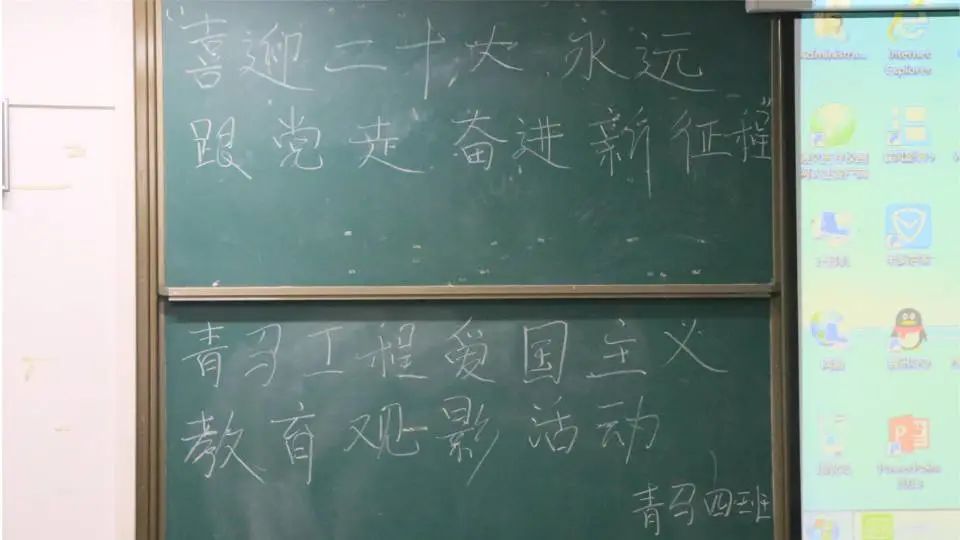 “喜迎二十大 永远
跟党走 奋进新征程”
青马工程爱国主义
教育观影活动
青马四班
Internet
Explorer
PowerPoint